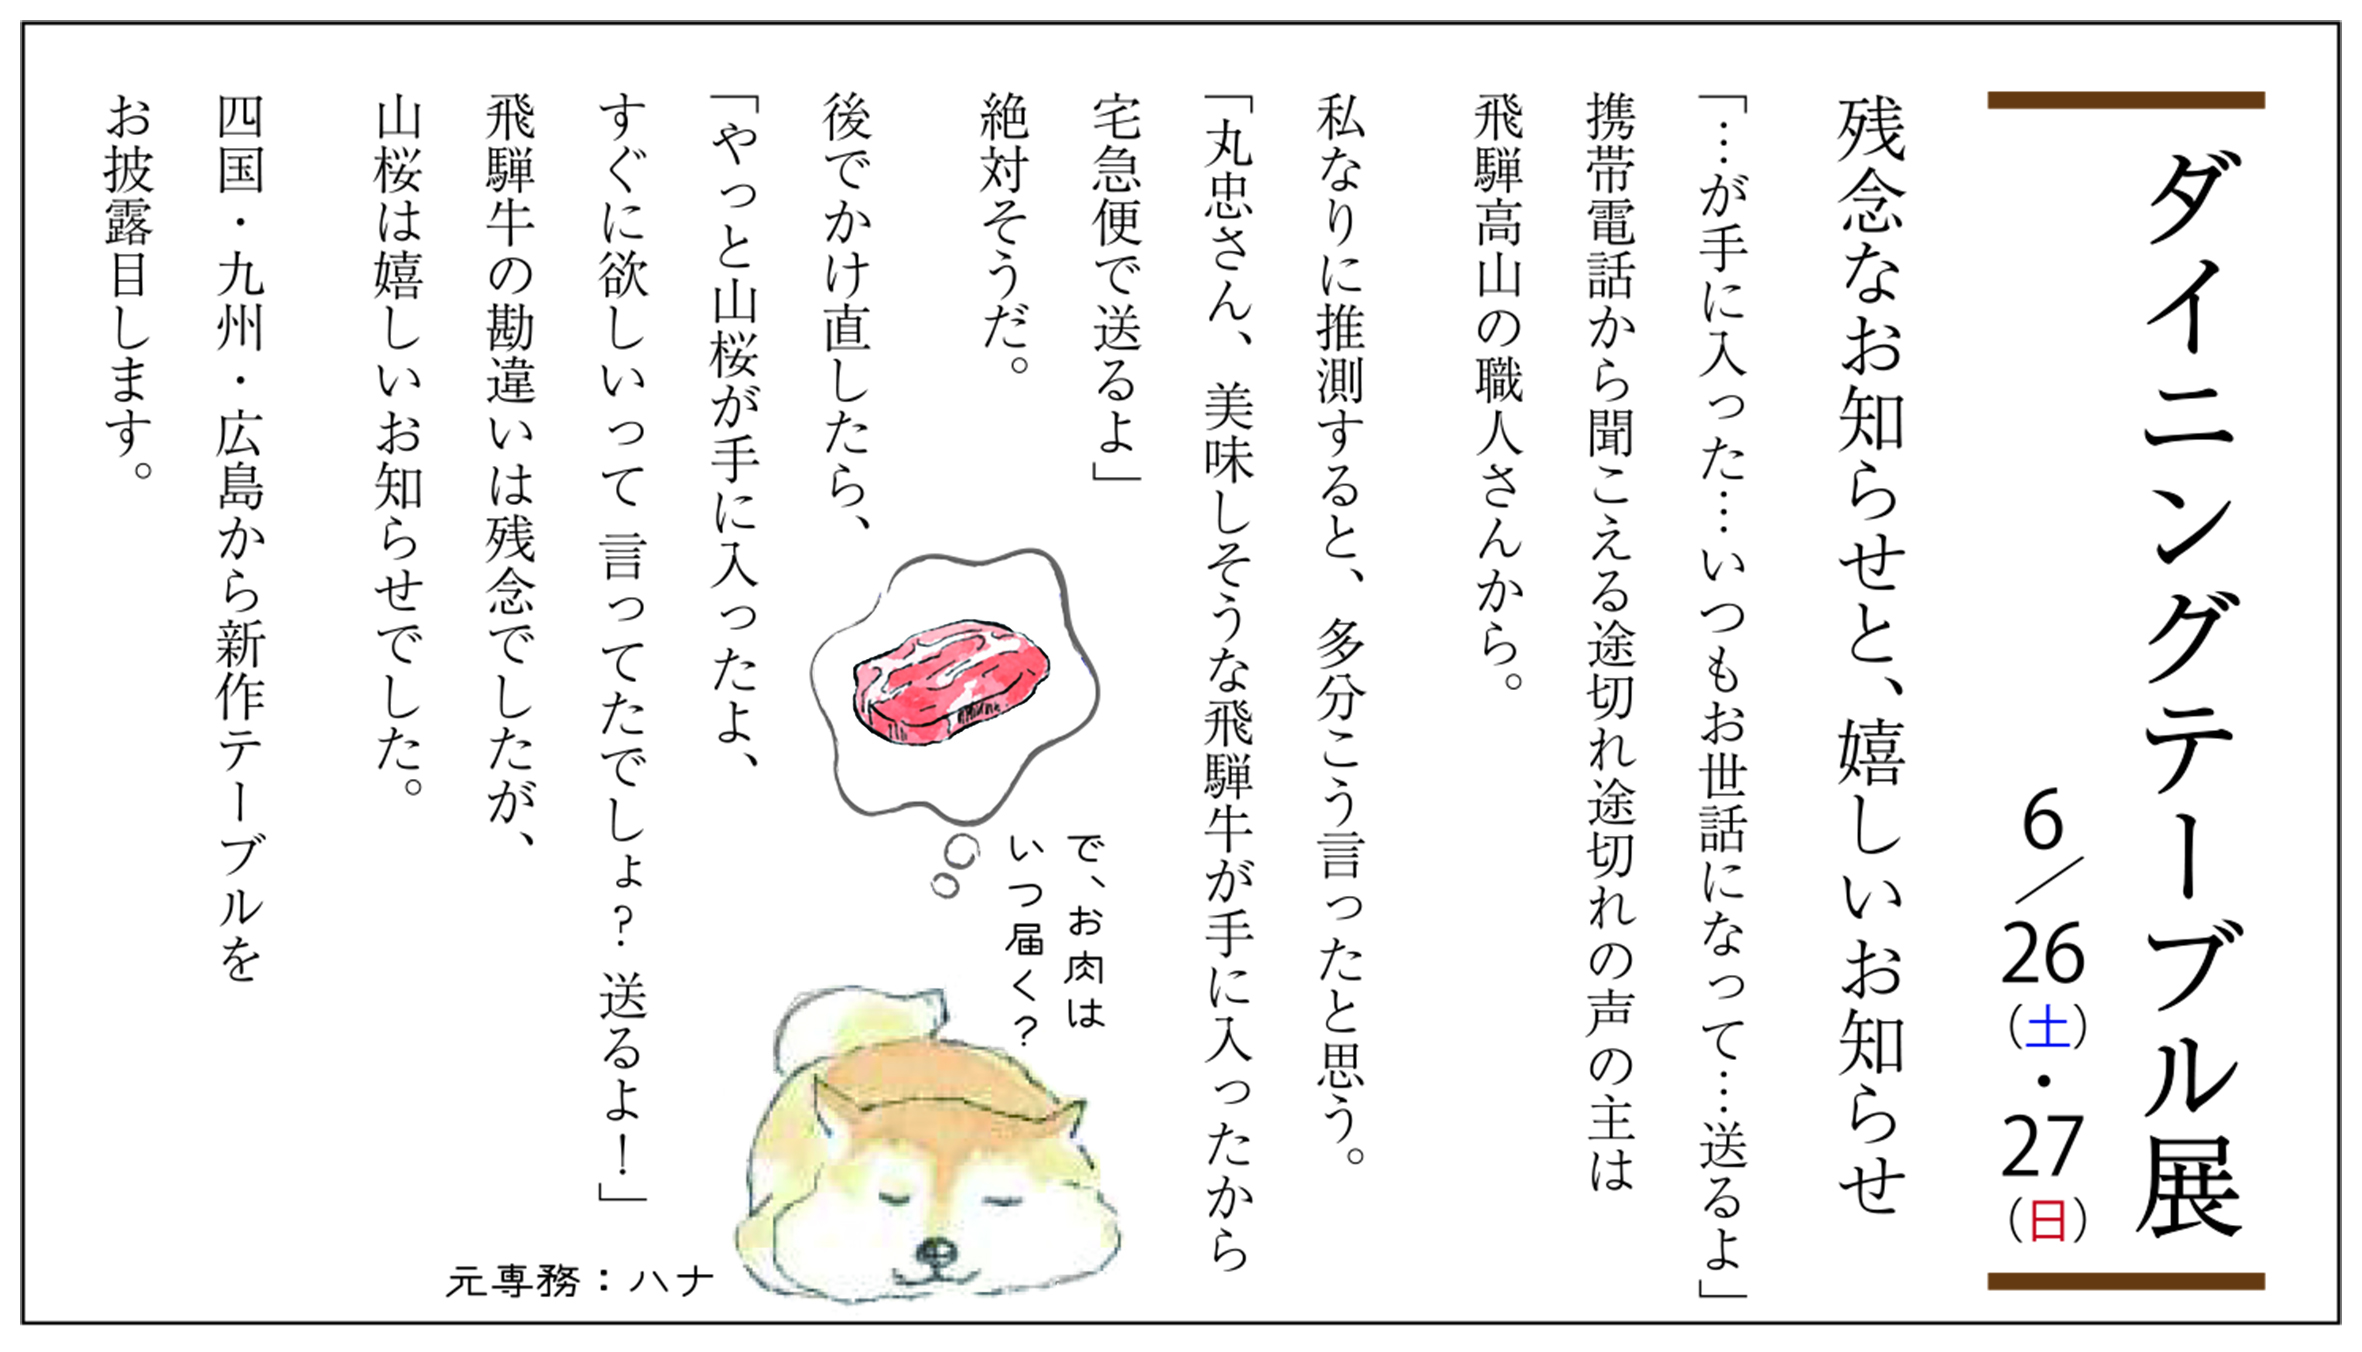 ダイニングテーブル展
6/26(土)・27(日)
残念なお知らせと、嬉しいお知らせ
「…が手に入った…いつもお世話になって…送るよ」
携帯電話から聞こえる途切れ途切れの声の主は
飛騨高山の職人さんから。
私なりに推測すると、多分こう言ったと思う。
「丸忠さん、美味しそうな飛騨牛が手に入ったから
宅急便で送るよ」
絶対そうだ。
後でかけ直したら、
「やっと山桜が手に入ったよ、
すぐに欲しいって 言ってたでしょ? 送るよ!」
飛騨牛の勘違いは残念でしたが、
山桜は嬉しいお知らせでした。
四国・九州・広島から新作テーブルを
お披露目します。
で、お肉は
いつ届く?
元専務:ハナ